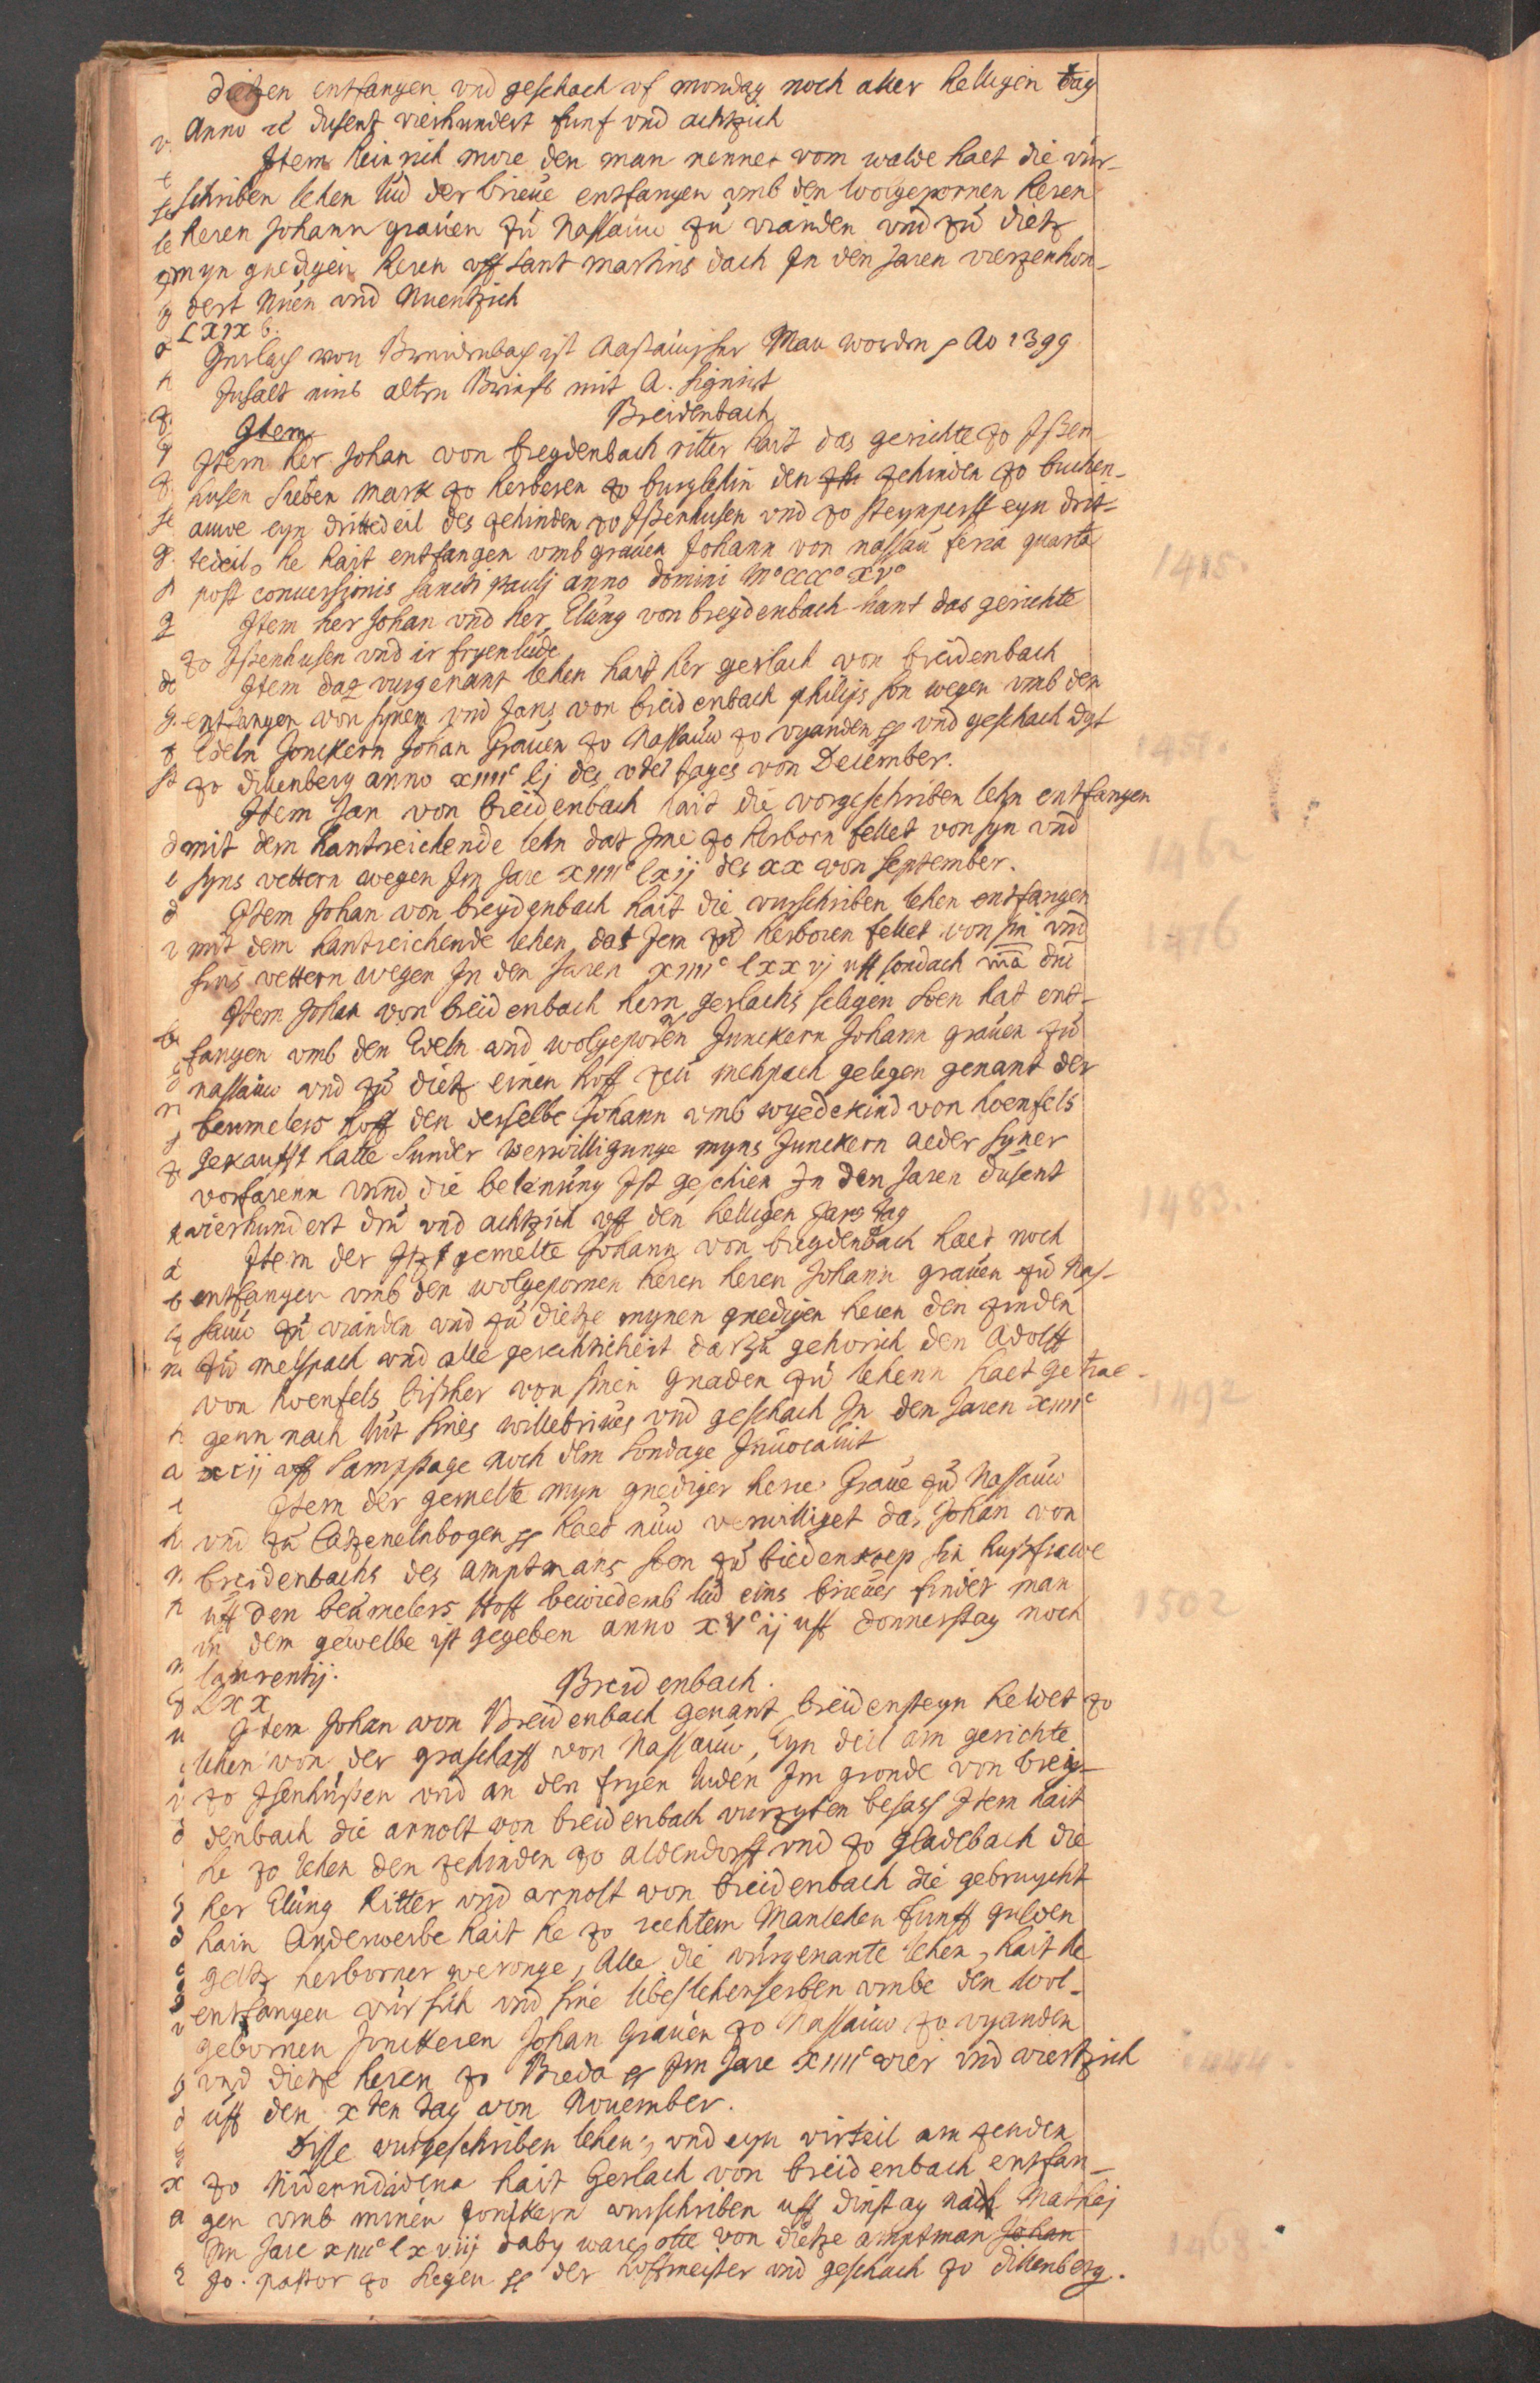 dietzen entfangen vnd geschach vf mondag noch aller helligen tag
Anno dusent vierhundert funf vnd achtzich
Item heinrich more den man nennet vom walde haet die vur-
schriben lehen lud der brieue entfangen vmb den wolgepornen heren
heren Johann grauen zu Nassauw zu vianden vnd zu dietz
myn gnedigen heren vff sant martins dach In den Jaren vierzenhon-
dert Nuen vnd Nuentzich
LXIX b.
Gerlach von Breidenbach ist Nassauischer Man worden Ao 1399
Inhalt eins alten Briefs mit A. signirt
Item Breidenbach
Item her Johan von breydenbach ritter hait das gerichte zo Ißen
husen sieben mark zo herberen zo burglehin den zehinden zo buchen-
auwe eyn drittedeil des zehinden zo Ißenhusen vnd zo steynperff eyn drit-
tedeil, he hait entfangen vmb grauen Johann von nassau feria quarta
post conuersionis sancti paulj anno domini Mo cccco xvo
1415.
Item her Johan vnd her Elung von breydenbach hant das gerichte
zo Ißenhusen vnd ir fryenlude
Item daz vurgenant lehen hait her gerlach von breidenbach
entfangen von synem vnd Jans von breidenbach philips son wegen vmb den
Edeln Jonckern Johan Grauen zo Nassauw zo vyanden vnd geschach dyt
zo dillenberg anno xiiiic lj des tages von December.
1451.
Item Jan von breidenbach hait die vorgeschriben lehn entfangen
mit dem hantreichende lehn dat Ime zo herborn fellet von syn vnd
syns vettern wegen Im Jare xiiiic lxij des xx von September.
1462
Item Johan von breydenbach hait die vurschriben lehen entfangen
mit dem hantreichende lehen, dat Jem zu herboren fellet von sin vnd
sins vettern wegen In den Jaren xiiiic lxxvj uff sondach dni
1476
Item Johan von breidenbach hern gerlachs seligen soen hat ent-
fangen vmb den Edeln vnd wolgeporen Junckern Johann grauen zu
nassauw vnd zu dietz einen hoff zeu melspach gelegen genant der
beumelers hoff den derselbe Johann vmb wyedekind von hoenfels
gekaufft hatte sunder verwilligunge myns Junckern aeder syner
vorfarenn vnnd die belenung Ist geschien In den Jaren dusent
vierhundert dru vnd achtzich vff den helligen Jars tag
1483.
Item der Itzt gemelte Johann von breydenbach haet noch
entfangen vmb den wolgepornen heren heren Johann grauen zu Nas-
sauw zu vianden vnd zu dietze mynen gnedigen heren den zenden
zu melspach vnd alle gerechticheit dartzu gehorich den Adolff
von hoenfels bißher von sinen gnaden zu lehenn haet getrae-
genn nach lut sines willebriues vnd geschach In den Jaren xiiiic
xcij vff sampstage noch dem sondage Inuocauit
1492
Item der gemelte myn gnediger herre Graue zu Nassauw
vnd zu Catzenelnbogen haet nuw verwilliget das Johan von
breidenbachs des amptmans soen zu biedenkoep sin husfrawe
uff den beumelers Hoff bewiedemb lud eins brieues findet man
in dem gewelbe ist gegeben anno xvc ij uff donnerstag noch
laurentij.
1502
Breidenbach.
LXX
Item Johan von Breidenbach genant breidensteyn heldet zo
lehen von der graschaff von Nassauw, Eyn deil am gerichte
zo Isenhußen vnd an den fryen luden Im gronde von brey-
denbach die arnolt von breidenbach vurzyten besass Item hait
he zo lehen den zehinden zo aldendorff vnd zo gladebach die
her Elung Ritter vnd arnolt von breidenbach die gebruycht
hain Anderwerbe hait he zo rechtem Manlehen funff gulden
geltz herborner weronge, Alle die vurgenante lehen, hait he
entfangen vur sich vnd sine libeslehenserben vmbe den wol-
gebornen Jonckeren Johan Grauen zo Nassauw zo vyanden
vnd dietze heren zo Breda Im Jare xiiiic vier vnd viertzich
uff den xten tag von Nouember.
1444.
Disse vurgeschriben lehen, vnd eyn virteil am zenden
zo Nidernadena hait Gerlach von breidenbach entfan-
gen vmb minen Jonckern vurschriben uff dinstag nach Mathej
Im Jare xiiiic lxviij daby ware otte von dietze amptman Johan
zo. pastor zo Hegen der hoffmeister vnd geschach zo dillenberg.
1468.